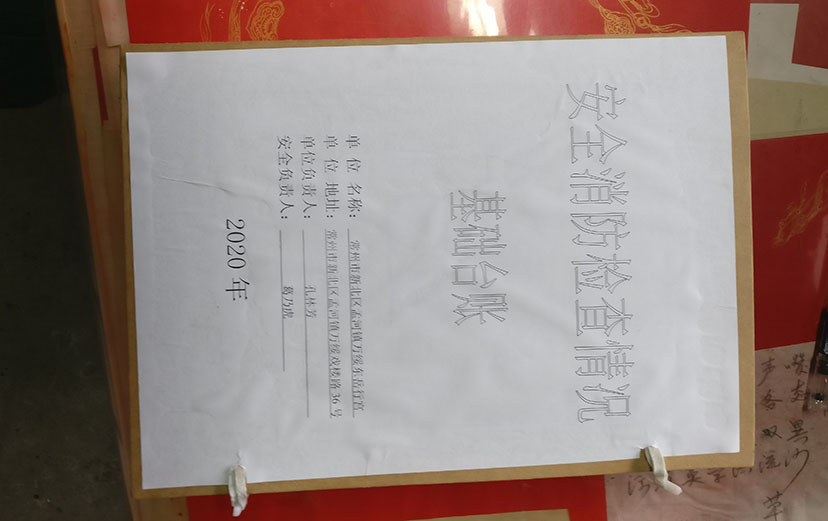 安全消防检查情况
基础台账
单 位 名称：常州市新北区孟河镇万绥东岳行宫
单 位 地址：常州市新北区孟河镇万绥戏楼路36号
单位负责人：孔林芳
安全负责人：葛乃虎
2020 年